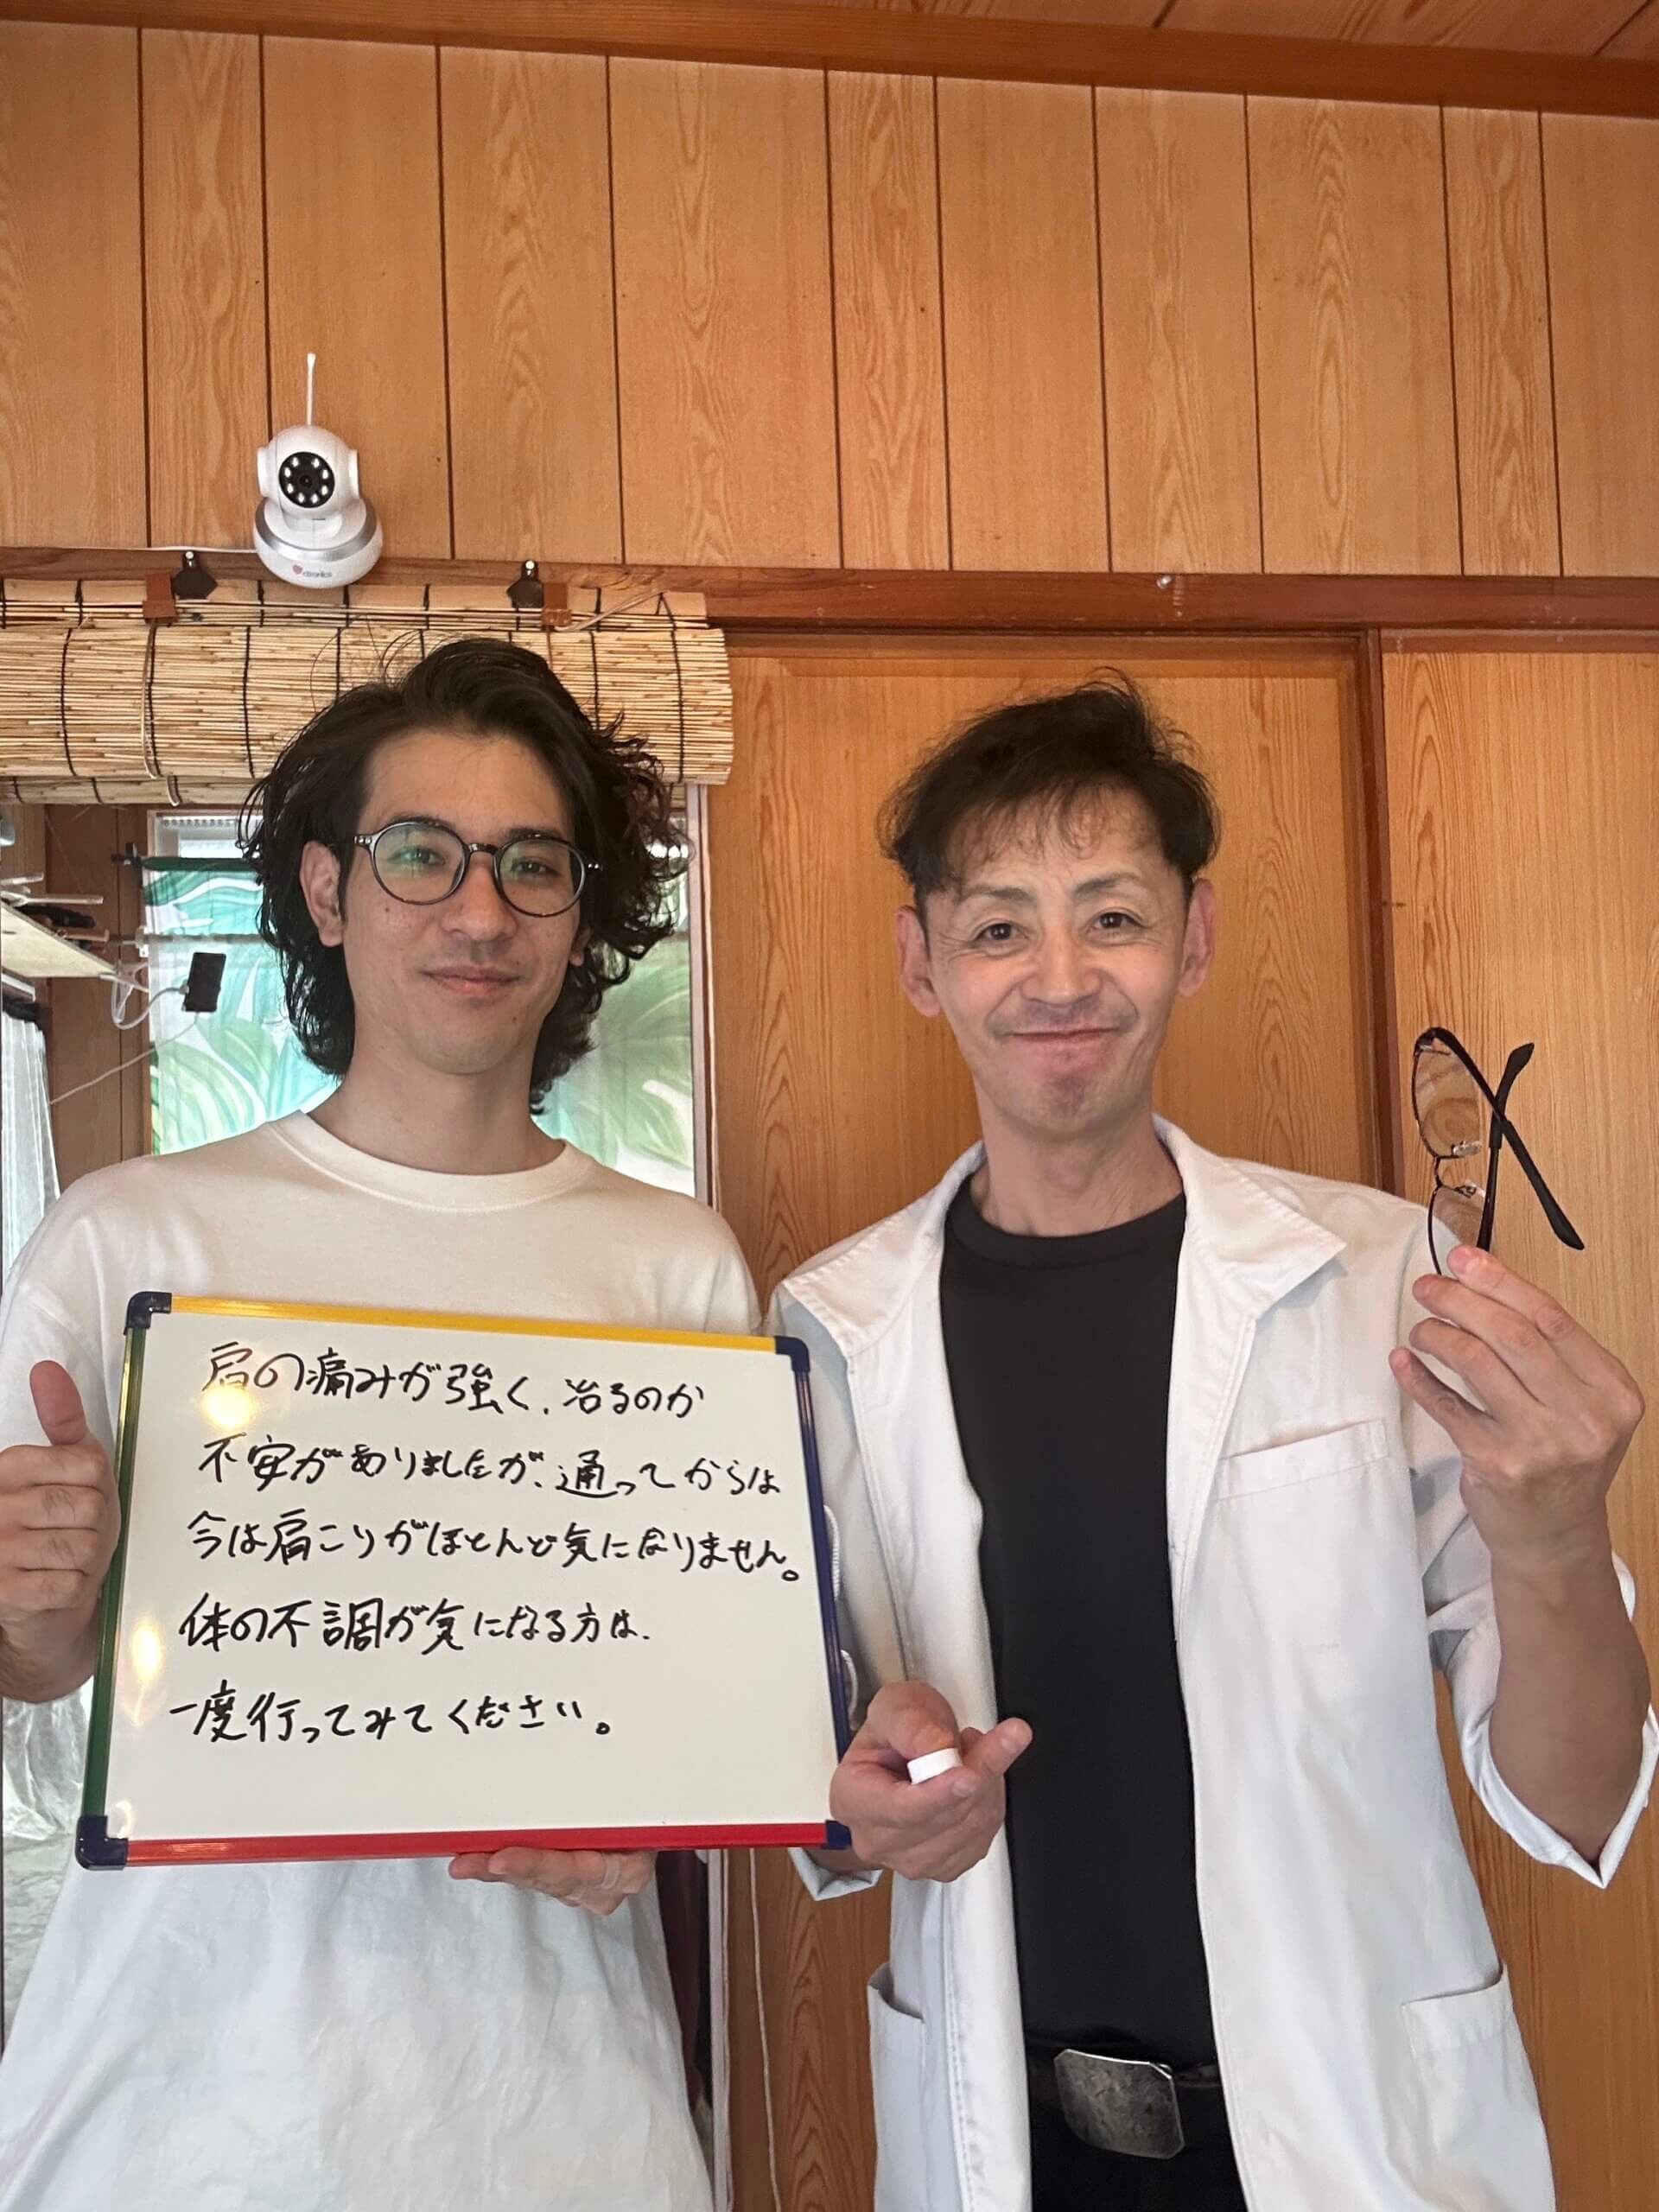 肩の痛みが強く、治るのか
不安がありましたが、通ってからは
今は肩こりがほとんど気になりません。
体の不調が気になる方は、
一度行ってみてください。
ctronics